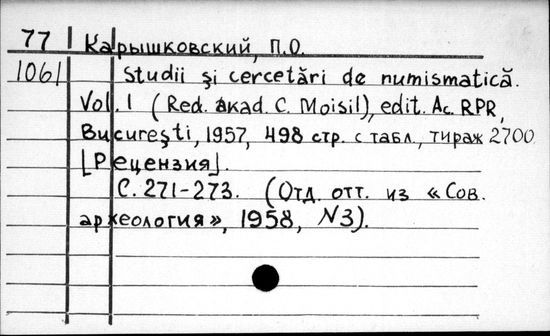 77 Карышковский, П.О.
1061 Studii şi cercetări de numismatică.
Vol. 1 (Red. akad. C. Moisil), edit. Ac. RPR,
Bucureşti, 1957, 498 стр. с табл., тираж 2700
[Рецензия].
С. 271-273. (Отд. отт. из «Сов.
археология», 1958, N3).